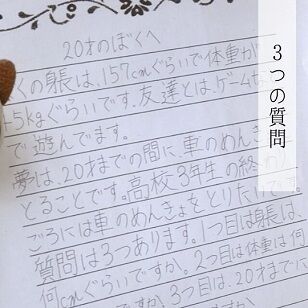 20才のぼくへ
くの身長は、157cmぐらいで体重が
5kgぐらいです。友達とは、ゲーム
で遊んでます。
夢は、20才までの間に、車のめんき
とることです。高校3年生の終わり
ごろには車のめんきょをとりたいです。
質問は3つあります。1つ目は身長は
何cmぐらいですか。2つ目は体重は何
ぐらいですか。3つ目は、20才までに
3つの質問